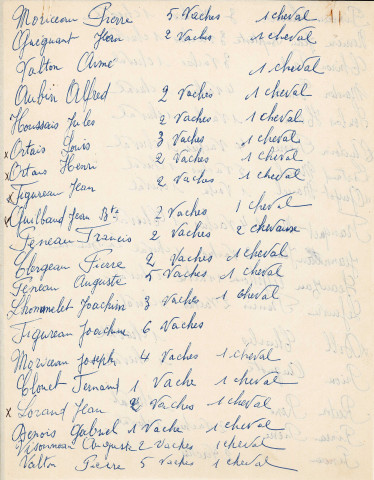 Moriceau Pierre 5 Vaches 1 cheval
Guéguant Jean 2 Vaches 1 cheval
Valton Aimé 1 cheval
Aubin Alfred 2 Vaches 1 cheval
Houssais Jules 2 Vaches 1 cheval
x Ortais Louis 3 Vaches 1 cheval
x Ortais Henri 2 Vaches 1 cheval
x Figureau Jean 2 Vaches 1 cheval
x Guilbaud Jean Bte 2 Vaches 1 cheval
Feneau Francis 2 Vaches 2 chevaux
Clergeau Pierre 2 Vaches 1 cheval
Feneau Auguste 5 Vaches 1 cheval
Lhommelet Joachim 3 Vaches 1 cheval
Figureau Joachim 6 Vaches
Moriceau Joseph 4 Vaches 1 cheval
Clouet Fernand 1 Vache 1 cheval
x Lorand Jean 2 Vaches 1 cheval
Benois Gabriel 1 Vache 1 cheval
Auguste 2 Vaches 1 cheval
Valton Pierre 5 Vaches 1 cheval